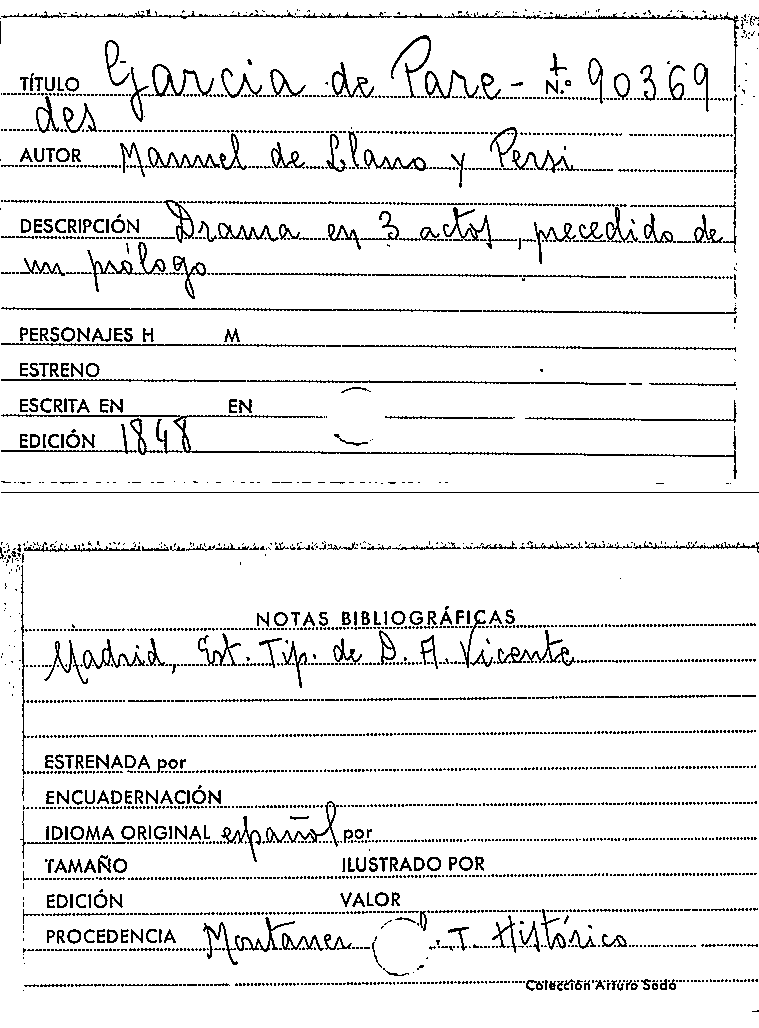 TÍTULO Garcia de Pare- N.º 90369
des
AUTOR Manuel de Llano y Persi
DESCRIPCIÓN Drama en 3 actos, precedido de
un prólogo
PERSONAJES H M
ESTRENO
ESCRITA EN EN
EDICIÓN 1848
NOTAS BIBLIOGRÁFICAS
Madrid, Est. Tip. de D. A. Vicente
ESTRENADA por
ENCUADERNACIÓN
IDIOMA ORIGINAL español por
TAMAÑO ILUSTRADO POR
EDICIÓN VALOR
PROCEDENCIA Montaner T. Histórico
Colección Arturo Sedó